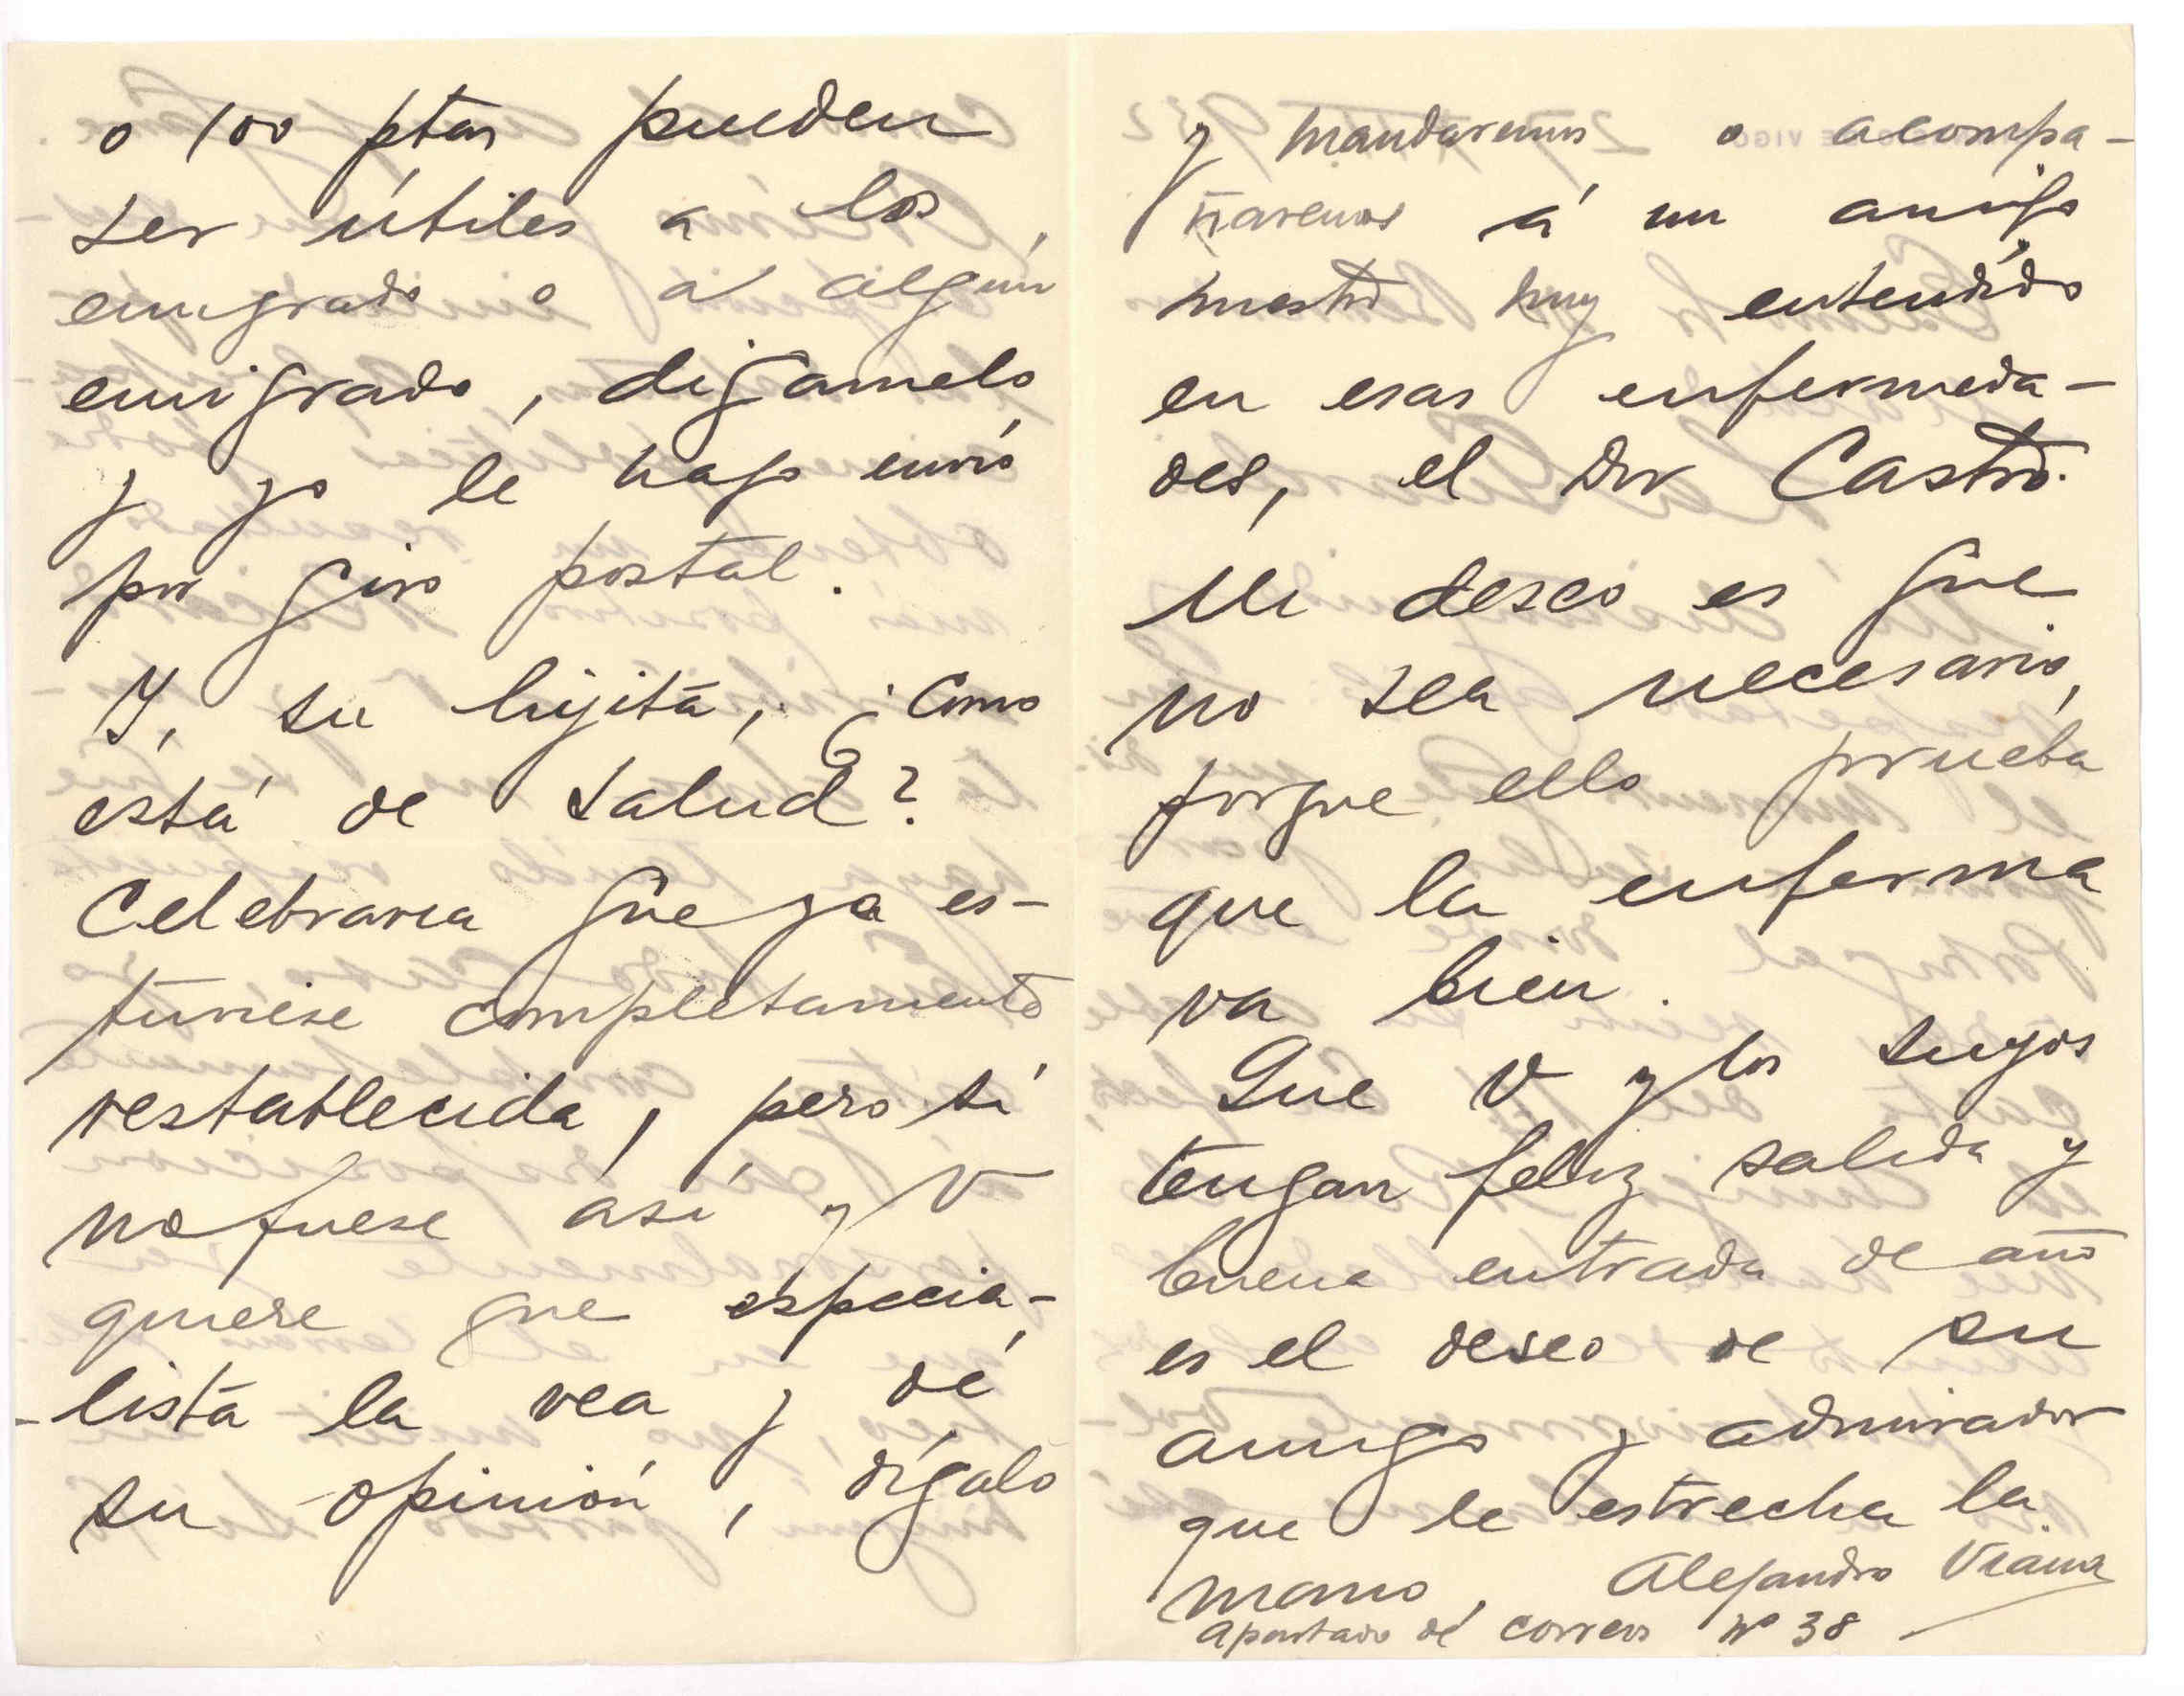 o 100 ptas pueden
ser útiles a los
emigrado o a algún
emigrado, digamelo
y yo le hago envio
por giro postal.
Y, su hijita, ¿como
está de salud?
Celebraria que ya es-
tuviese completamente
restablecida, pero si
no fuese así y V
quiere que especia-
-lista la vea y dé
su opinión, dígalo
y mandaremos o acompa-
ñaremos á un amigo
nuestro muy entendido
en esas enfermeda-
des, el Dor Castro.
Mi deseo es que
no sea necesario,
porque ello prueba
que la enferma
va bien.
Que V y los suyos
tengan feliz salida y
buena entrada de año
es el deseo de su
amigo y admirador
que le estrecha la
mano, Alejandro Viana
Apartado de correos nº 38